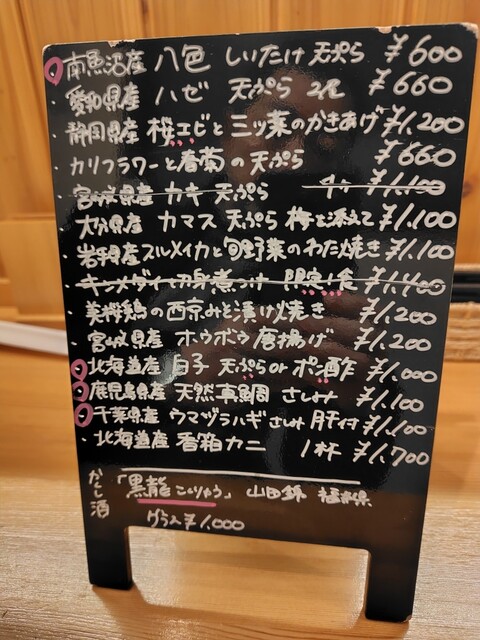 南魚沼産 八色 しいたけ 天ぷら ¥600
愛知県産 ハゼ 天ぷら 2尾 ¥660
・静岡県産 桜エビと三ツ葉のかきあげ ¥1,200
・カリフラワーと春菊の天ぷら ¥660
・宮城県産 カキ 天ぷら 4ヶ ¥1,100
大分県産 カマス 天ぷら 梅を添えて ¥1,100
・岩手県産スルメイカと旬野菜のわた焼き ¥1,100
・キンメダイ切身煮つけ 限定1食 ¥1,400
美桜鶏の西京みそ漬け焼き ¥1,200
・宮城県産 ホウボウ 唐揚げ ¥1,200
北海道産 白子 天ぷらor ポン酢 ¥1,000
鹿児島県産 天然真鯛 さしみ ¥1,100
千葉県産 ウマヅラハギさしみ 肝付 ¥1,100
・北海道産 香箱カニ 1杯 ¥1,700
かんし酒 「黒龍 こくりゅう」 山田錦 福井県
グラス¥1,000